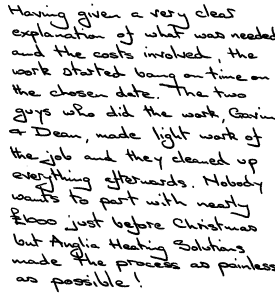 Having given a very clear
explanation of what was needed
and the costs involved, the
work started bang on time on
the chosen date. The two
guys who did the work, Gavin
& Dean, made light work of
the job and they cleaned up
everything afterwards. Nobody
wants to part with nearly
£1000 just before Christmas
but Anglia Heating Solutions
made the process as painless
as possible!